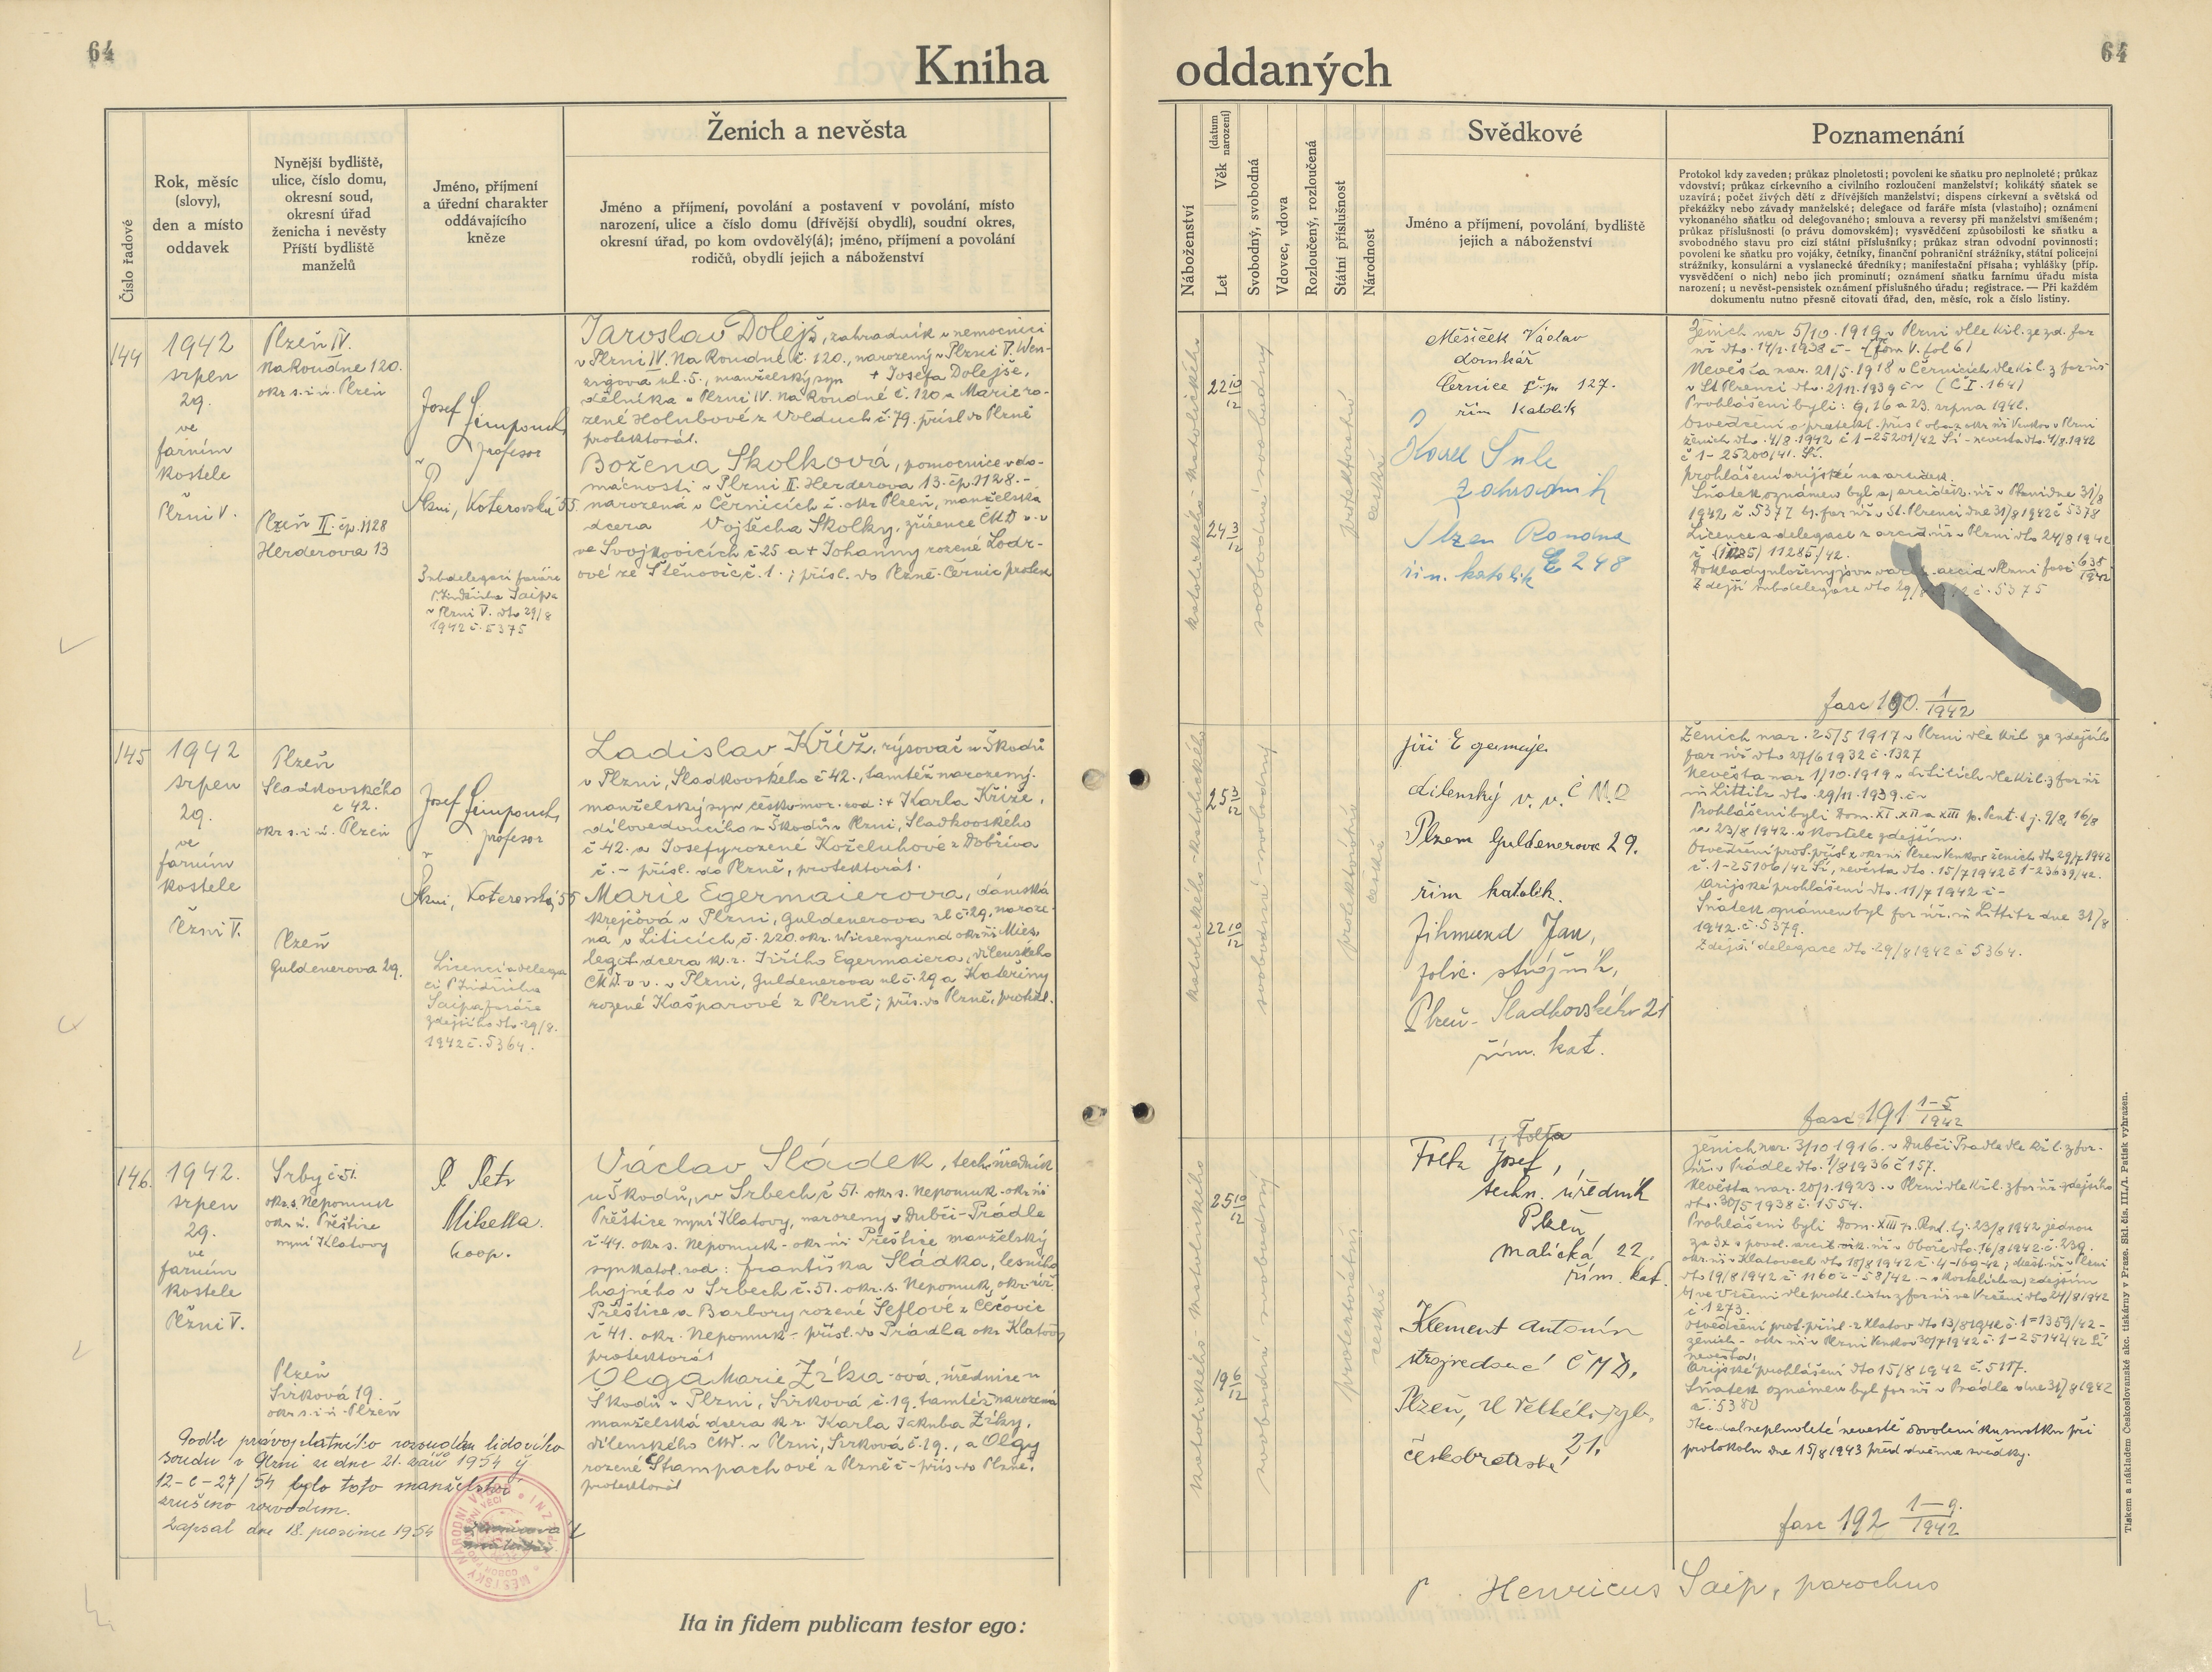 64
Kniha
Číslo řadové
Rok, měsíc
(slovy),
den a místo
oddavek
Nynější bydliště,
ulice, číslo domu,
okresní soud,
okresní úřad
ženicha i nevěsty
Příští bydliště
manželů
Jméno, příjmení
a úřední charakter
oddávajícího
kněze
Ženich a nevěsta
Jméno a příjmení, povolání a postavení v povolání, místo
narození, ulice a číslo domu (dřívější obydlí), soudní okres,
okresní úřad, po kom ovdovělý(á); jméno, příjmení a povolání
rodičů, obydlí jejich a náboženství
144
1942
srpen
29.
ve
farním
kostele
Plzni V.
Plzeň IV.
Na Roudné 120.
okr. s. i ú. Plzeň
Plzeň II. čp. 1128
Herderova 13
Josef
profesor
Plzni, Koterovská 55
Subdelegací faráře
P. Jindřicha Saipa
v Plzni V. dto 29/8
1942 č. 5375
Jaroslav Dolejš, zahradník v nemocnici
v Plzni IV. Na Roudné č. 120., narozený v Plzni V. Wen-
zigova ul. 5., manželský syn + Josefa Dolejše,
dělníka v Plzni IV. Na Roudné č. 120 a Marie ro-
zené Holubové z Volduch č. 79. přísl. do Plzně
protektorát.
Božena Skolková, pomocnice v do-
mácnosti v Plzni II. Herderova 13. čp. 1128. -
narozená v Černicích č. okr. Plzeň, manželská
dcera Vojtěcha Skolky, zřízence ČMD v. v.
ve Svojkovicích č 25 a + Johanny rozené Lodr-
ové ze Štěnovic č. 1. ; přísl. do Plzně-Černic protek
145
1942
srpen
29.
ve
farním
kostele
Plzni V.
Plzeň
Sladkovského
č 42.
okr s. i ú. Plzeň
Plzeň
Guldenerova 29.
Josef
profesor
Plzni, Koterovská 55
Licencí a delega
cí P. Jindřicha
Saipa faráře
zdejšího dto 29/8.
1942 č. 5364.
Ladislav Kříž, rýsovač u Škodů
v Plzni, Sladkovského č 42., tamtéž narozený.
manželský syn českomor. vod: + Karla Kříže,
dílovedoucího u Škodů v Plzni, Sladkovského
č 42. a Josefy rozené Koželuhové z Dobříva
č. - přísl. do Plzně, protektorát.
Marie Egermaierova, dámská
krejčová v Plzni, Guldenerova ul č. 29, naroze-
ná v Liticích, č. 220. okr. Wiesengrund okr. úř. Mies,
legit dcera k. r. Jiřího Egermaiera, dílenského
ČMD. v. v. v Plzni, Guldenerova ul č. 29 a Kateřiny
rozené Kašparové z Plzně; přís. do Plzně, protekt.
146.
1942.
srpen
29.
ve
farním
kostele
Plzni V.
Srby č 51.
okr. s. Nepomuk
okr. ú. Přeštice
nyní Klatovy
Plzeň
Sirková 19.
okr s. i ú Plzeň
P. Petr
Mikella.
koop.
Václav Sládek, tech. úředník
u Škodů, v Srbech č 51. okr. s. Nepomuk - okr. úř
Přeštice nyní Klatovy, narozený v Dubči-Prádle
č 44. okr. s. Nepomuk - okr. úř Přeštice manželský
syn katol. rod: Františka Sládka, lesního
hajného v Srbech č. 51. okr. s. Nepomuk, okr. úř
Přeštice a Barbory rozené Šeflové z Čečovic
č 41. okr. Nepomuk - přísl. do Prádla okr Klatovy
protektorát
Olga Marie Zíka-ová, úřednice u
Škodů v Plzni, Sirková č. 19. tamtéž narozená
manželská dcera k r. Karla Jakuba Zíky,
dílenského ČMD. v Plzni, Sirková č. 19., a Olgy
rozené Štampachové z Plzně č - přís do Plzně,
protektorát
Podle právoplatného rozsudku lidového
soudu v Plzni ze dne 21. září 1954 č
12-C-27/54 bylo toto manželství
zrušeno rozvodem.
Zapsal dne 18. prosince 1954
Ita in fidem publicam testor ego:
oddaných
64
Náboženství
Věk (datum narození)
Let
Svobodný, svobodná
Vdovec, vdova
Rozloučený, rozloučená
Státní příslušnost
Národnost
Svědkové
Jméno a příjmení, povolání, bydliště
jejich a náboženství
Poznamenání
Protokol kdy zaveden; průkaz plnoletosti; povolení ke sňatku pro neplnoleté; průkaz
vdovství; průkaz církevního a civilního rozloučení manželství; kolikátý sňatek se
uzavírá; počet živých dětí z dřívějších manželství; dispens církevní a světská od
překážky nebo závady manželské; delegace od faráře místa (vlastního); oznámení
vykonaného sňatku od delegovaného; smlouva a reversy při manželství smíšeném;
průkaz příslušnosti (o právu domovském); vysvědčení způsobilosti ke sňatku a
svobodného stavu pro cizí státní příslušníky; průkaz stran odvodní povinnosti;
povolení ke sňatku pro vojáky, četníky, finanční pohraniční strážníky, státní policejní
strážníky, konsulární a vyslanecké úředníky; manifestační přísaha; vyhlášky (příp.
vysvědčení o nich) nebo jich prominutí; oznámení sňatku farnímu úřadu místa
narození; u nevěst-pensistek oznámení příslušného úřadu; registrace. — Při každém
dokumentu nutno přesně citovati úřad, den, měsíc, rok a číslo listiny.
katolického - katolického
22 10/12
24 3/12
svobodná svobodný
protektorátní
česká
Měsíček Václav
domkář
Černice čp. 127.
řím katolík
Karel Šule
zahradník
Plzen Roudna
č 248
řím. katolík
Ženich nar 5/10. 1919 v Plzni dle kř. l. ze zd. far
úř dto. 14/1. 1938 č - (fom V. fol 6)
Nevěsta nar. 21/5. 1918 v Černicích dle kř. l. z far úř
v St Plzenci dto. 2/11. 1939 č - (Č I. 164)
Prohlášeni byli: 9, 16 a 23. srpna 1942.
Osvědčení o protekt. přísl oba z okr úř Venkov v Plzni
ženich dto. 4/8 1942 č 1-25201/42 Ší - nevěsta dto. 4/8. 1942
č 1-25200/41. Ší.
prohlášení arijské na arciděk.
Sňatek oznámen byl a) arciděk. úř v Plzni dne 31/8
1942 č. 5377 b) far úř v St. Plzenci dne 31/8 1942 č 5378
Licence a delegace z arcid úř v Plzni dto 24/8 1942
11285/42.
Doklady uloženy jsou arcid v Plzni fasc 638/1942
Zdejší subdelegace dto 29/8 č. 5375
fasc 190. 1/1942
katolického - katolického
25 3/12
22 10/12
svobodná - svobodný
protektorátní
česká
Jiří Egermaje
dílenský v. v. Č M. D
Plzem Guldenerova 29.
řím katolek.
Zihmund Jan,
polic. strážník,
Plzeň - Sladkovského 21
řím. kat.
Ženich nar. 25/5 1917 v Plzni dle kř.l. ze zdejšího
far úř dto 27/6 1932 č. 1327
Nevěsta nar 1/10. 1919 v Liticích dle kř.l. z far úř
in Littitz dto. 29/11. 1939. č -
Prohlášeni byli Dom. XI. XII a XIII p. Pent. t. j. 9/8, 16/8
a 23/8 1942. v kostele zdejším.
Osvědčení prot. přísl z okr úř Plzen Venkov ženich dto 29/7 1942
č. 1-25106/42 Ší, nevěsta dto. 15/7 1942 č 1-23639/42.
Arijské prohlášení dto. 11/7 1942 č -
Sňatek oznámen byl far úř. in Littitz dne 31/8
1942. č. 5379.
Zdejší delegace dto. 29/8 1942 č 5364.
fasc 191 1-5/1942
katolického katolického
25 10/12
19 6/12
svobodná svobodný
protektorátní
česká
Folta
Folta Josef,
techn. úředník
Plzeň
Malická 22.
řím. kat.
Klement Antonín
strojvedoucí Č M D.
Plzeň,
21.
českobratrské
ženich nar. 3/10 1916. v Dubči Prádle dle kř. l. z far.
úř. v Prádle dto. 1/8 1936 č 157.
Nevěsta nar. 20/1. 1923. v Plzni dle kř.l. z far úř zdejšího
dto. 30/5 1938 č. 1554.
Prohlášeni byli Dom. XIII p. Pent. t.j. 23/8 1942 jednou
okr. úř v Klatovech
dto 19/8 1942 č 11602-58/42. - v kostelích a) zdejším
b) ve Vrčeni dle prohl. listu z far úř ve Vrčeni dto 24/8 1942
č 1273.
Osvědčení prot. přísl. z Klatov dto 13/8 1942 č. 1-1359/42 -
ženich - okr úř v Plzni Venkov 30/7 1942 č. 1-25142/42 Ší
nevěsta.
Arijské prohlášení dto 15/8 1942 č. 5117.
Sňatek oznámen byl far úř v Prádle dne 31/8 1942
č. 5380
Otec dal neplnoleté nevěstě dovolení ku sňatku při
protokolu dne 15/8 1943 před dvěma svědky.
fasc 192 1-9./1942
P. Henricus Saip, parochus
Tiskem a nákladem Českoslovanské akc. tiskárny v Praze. Skl. čís. III./1. Patisk vyhrazen.